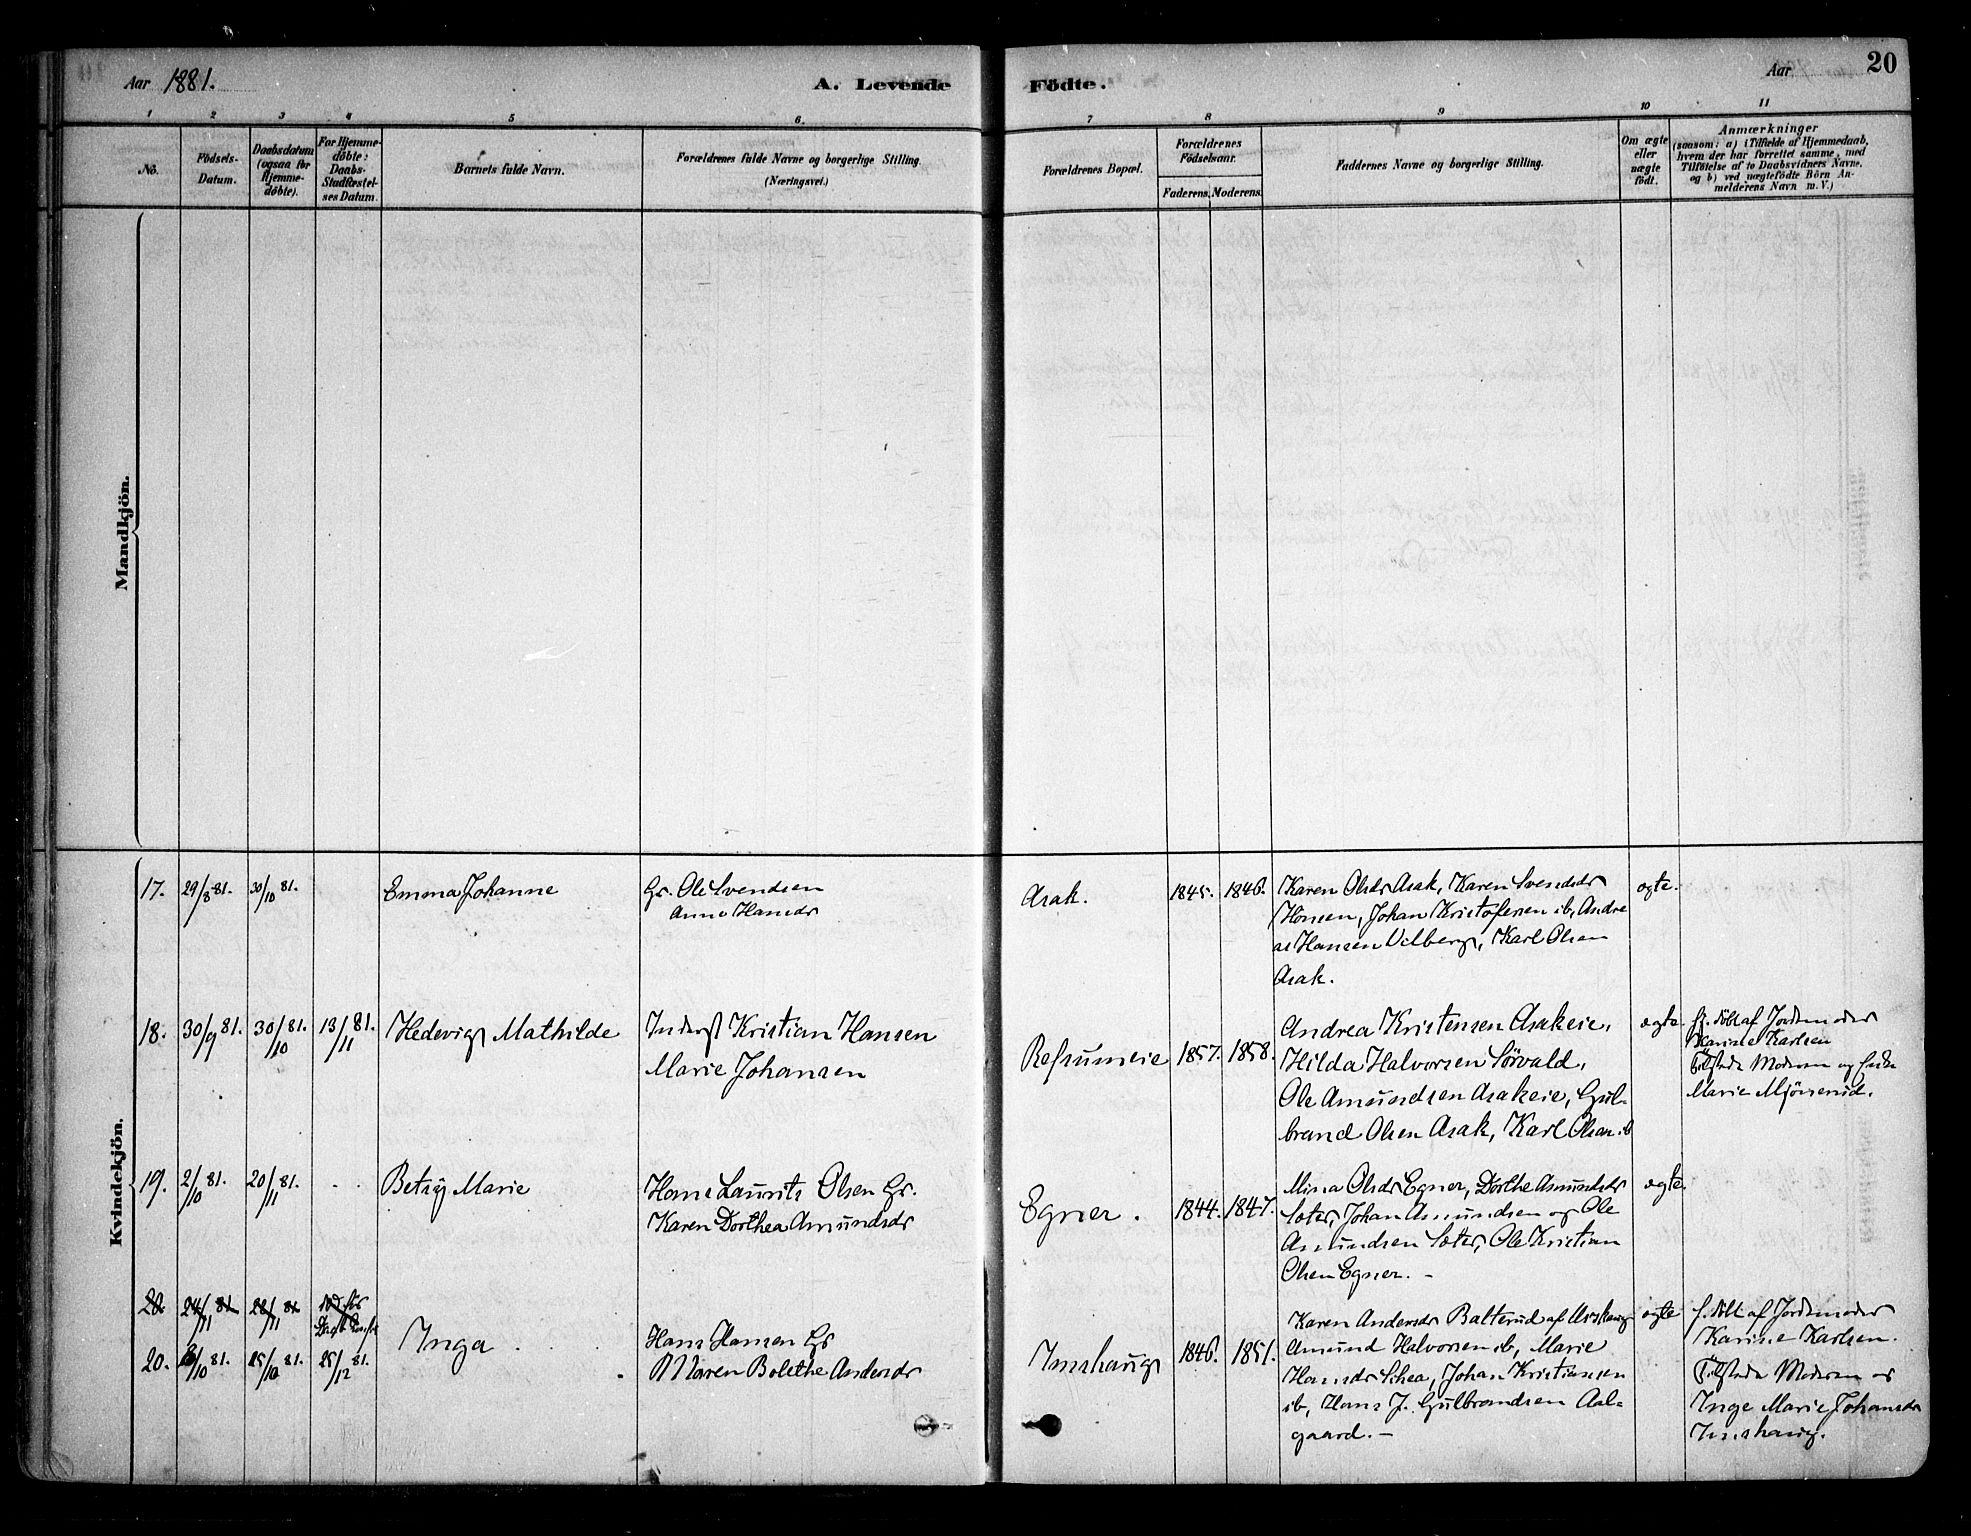 Aar 1881.
A. Levende
Födte.
Aar
20
1 2 3 4 5 6.
7 8 9 10 11
No.
Födsels-
Datum.
Daabsdatum
(ogsaa for
Hjemme-
döbte).
For Hjemme-
döbte:
Daabs-
Stadfæstel-
ses Datum.
Barnets fulde Navn.
Forældrenes fulde Navne og borgerlige Stilling.
(Næringsvei.)
Forældrenes Bopæl.
Forældrenes
Födselsaar.
Faderens.
Moderens.
Faddernes Navne og borgerlige Stilling.
Om ægte
eller
uægte
födt.
Anmærkninger
(saasom: a) i Tilfælde af Hjemmedaab,
hvem der har forrettet samme, med
Tilföielse af to Daabsvidners Navne.
og b) ved uægtefödte Börn An-
melderens Navn m. V.)
Mandkjön.
Kvindekjön.
17. 29/8 81. 30/10 81.
Emma Johanne
Gr. Ole Svendsen
Anne Hansdr
Asak.
1845. 1846.
Karen Olsdr Asak, Karen Svendsdr
Hönsen, Johan Kristofersen ib, Andre
as Hansen Vilberg, Karl Olsen
Asak.
ægte.
18. 30/9 81. 30/10 81. 13/11 81.
Hedevig Mathilde
Inderst Kristian Hansen
Marie Johansen
Refsumeie
1857. 1858.
Andrea Kristensen Asakeie,
Hilda Halvorsen Sörvald,
Ole Amundsen Asakeie, Gul-
brand Olsen Asak, Karl Olsen ib
ægte.
hj. döbt af Jordemoder
Karine Karlsen
Tilstede Moderen og Enke
Marie Mjönerud.
19. 2/10 81. 20/11 81. - -
Betsy Marie
Hans Laurits Olsen Gr.
Karen Dorthea Amundsdr
Egner.
1844. 1847.
Mina Olsdr Egner, Dorthe Amundsdr
Sæter, Johan Amundsen og Ole
Amundsen Sæter, Ole Kristian
Olsen Egner. -
ægte.
20. 24/11 81 28/11 81
20. 8/10 81. 15/10 81. 25/12 81.
Inga
Hans Hansen Gr
Maren Bolethe Andersdr
Imshaug
1846. 1851.
Karen Andersdr Balterud af Urskoug
Amund Halvorsen ib, Marie
Hansdr Schea, Johan Kristiansen
ib, Hans J. Gulbrandsen Aal-
gaard. -
ægte
h. döbt af Jordemoder
Karine Karlsen.
Tilstede Moderen og
Inge Marie Johansdr
Imshaug.